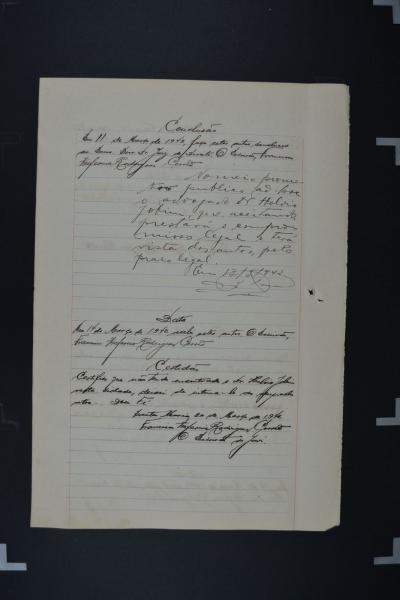 Conclusão
Em 11 de Março de 1942, faço estes autos conclusos
ao Exmo. Snr. Dr. Juiz de Direito. O Escrivão, Francisco
Rodrigues Corrêa
Nomeio promo-
tor publico ad hoc
o advogado Dr. Helvio
Jobim que, aceitando,
prestará o compro-
misso legal e terá
vista dos autos, pelo
prazo legal.
Em 12/3/1942
Data
Em 14 de Março de 1942 recebi estes autos. O Escrivão,
Francisco Rodrigues Corrêa
Certidão
Certifico que não tendo encontrado o Dr. Helvio Jobim
nesta cidade, deixei de intimal-o do despacho
retro. Dou fé
Santa Maria, 20 de Março de 1942
Francisco Rodrigues Corrêa
O Escrivão do Juri